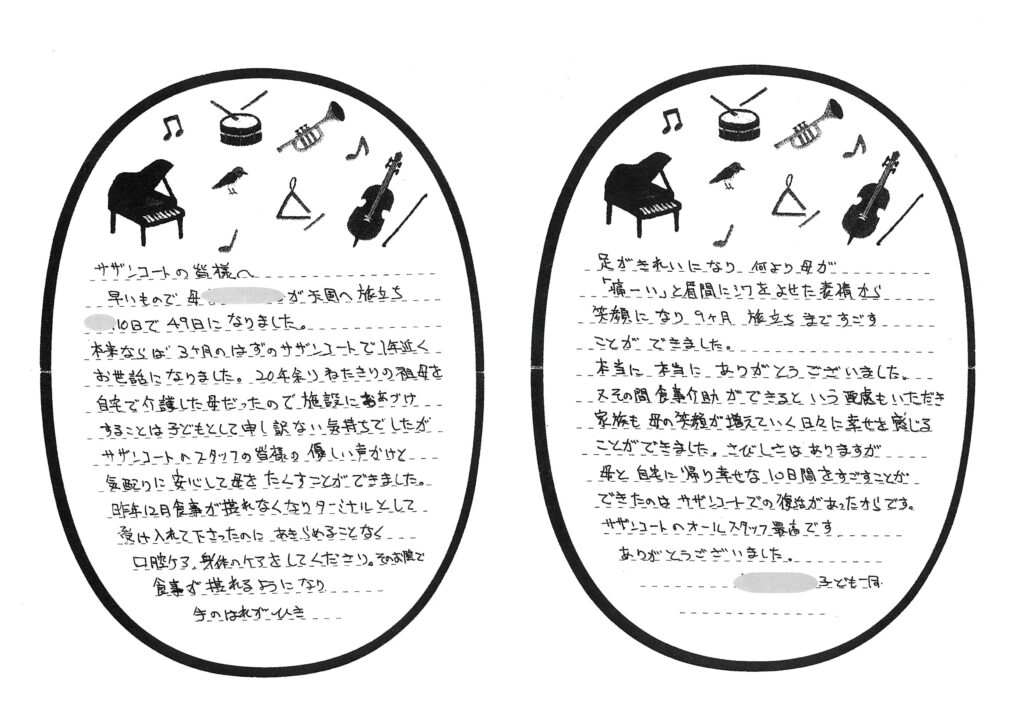 サザンコートの皆様へ
早いもので 母 が天国へ旅立ち
10日で49日になりました。
本来ならば3ヶ月のはずのサザンコートで1年近く
お世話になりました。20年余りねたきりの祖母を
自宅で介護した母だったので施設におあづけ
することは子どもとして申し訳ない気持ちでしたが
サザンコートのスタッフの皆様の優しい声かけと
気配りに安心して母をたくすことができました。
昨年12月食事が摂れなくなりターミナルとして
受け入れて下さったのに あきらめることなく
口腔ケア、身体のケアをしてくださり。そのお陰で
食事が摂れるようになり
手のはれがひき
足がきれいになり 何より母が
「痛ーい」と眉間にシワをよせた表情から
笑顔になり 9ヶ月 旅立ちまですごす
ことができました。
本当に 本当に ありがとうございました。
又その間食事介助ができるという配慮もいただき
家族も母の笑顔が増えていく日々に幸せを感じる
ことができました。さびしさはありますが
母と自宅に帰り幸せな10日間をすごすことが
できたのはサザンコートでの復活があったからです。
サザンコートのオールスタッフ最高です
ありがとうございました。
子ども一同